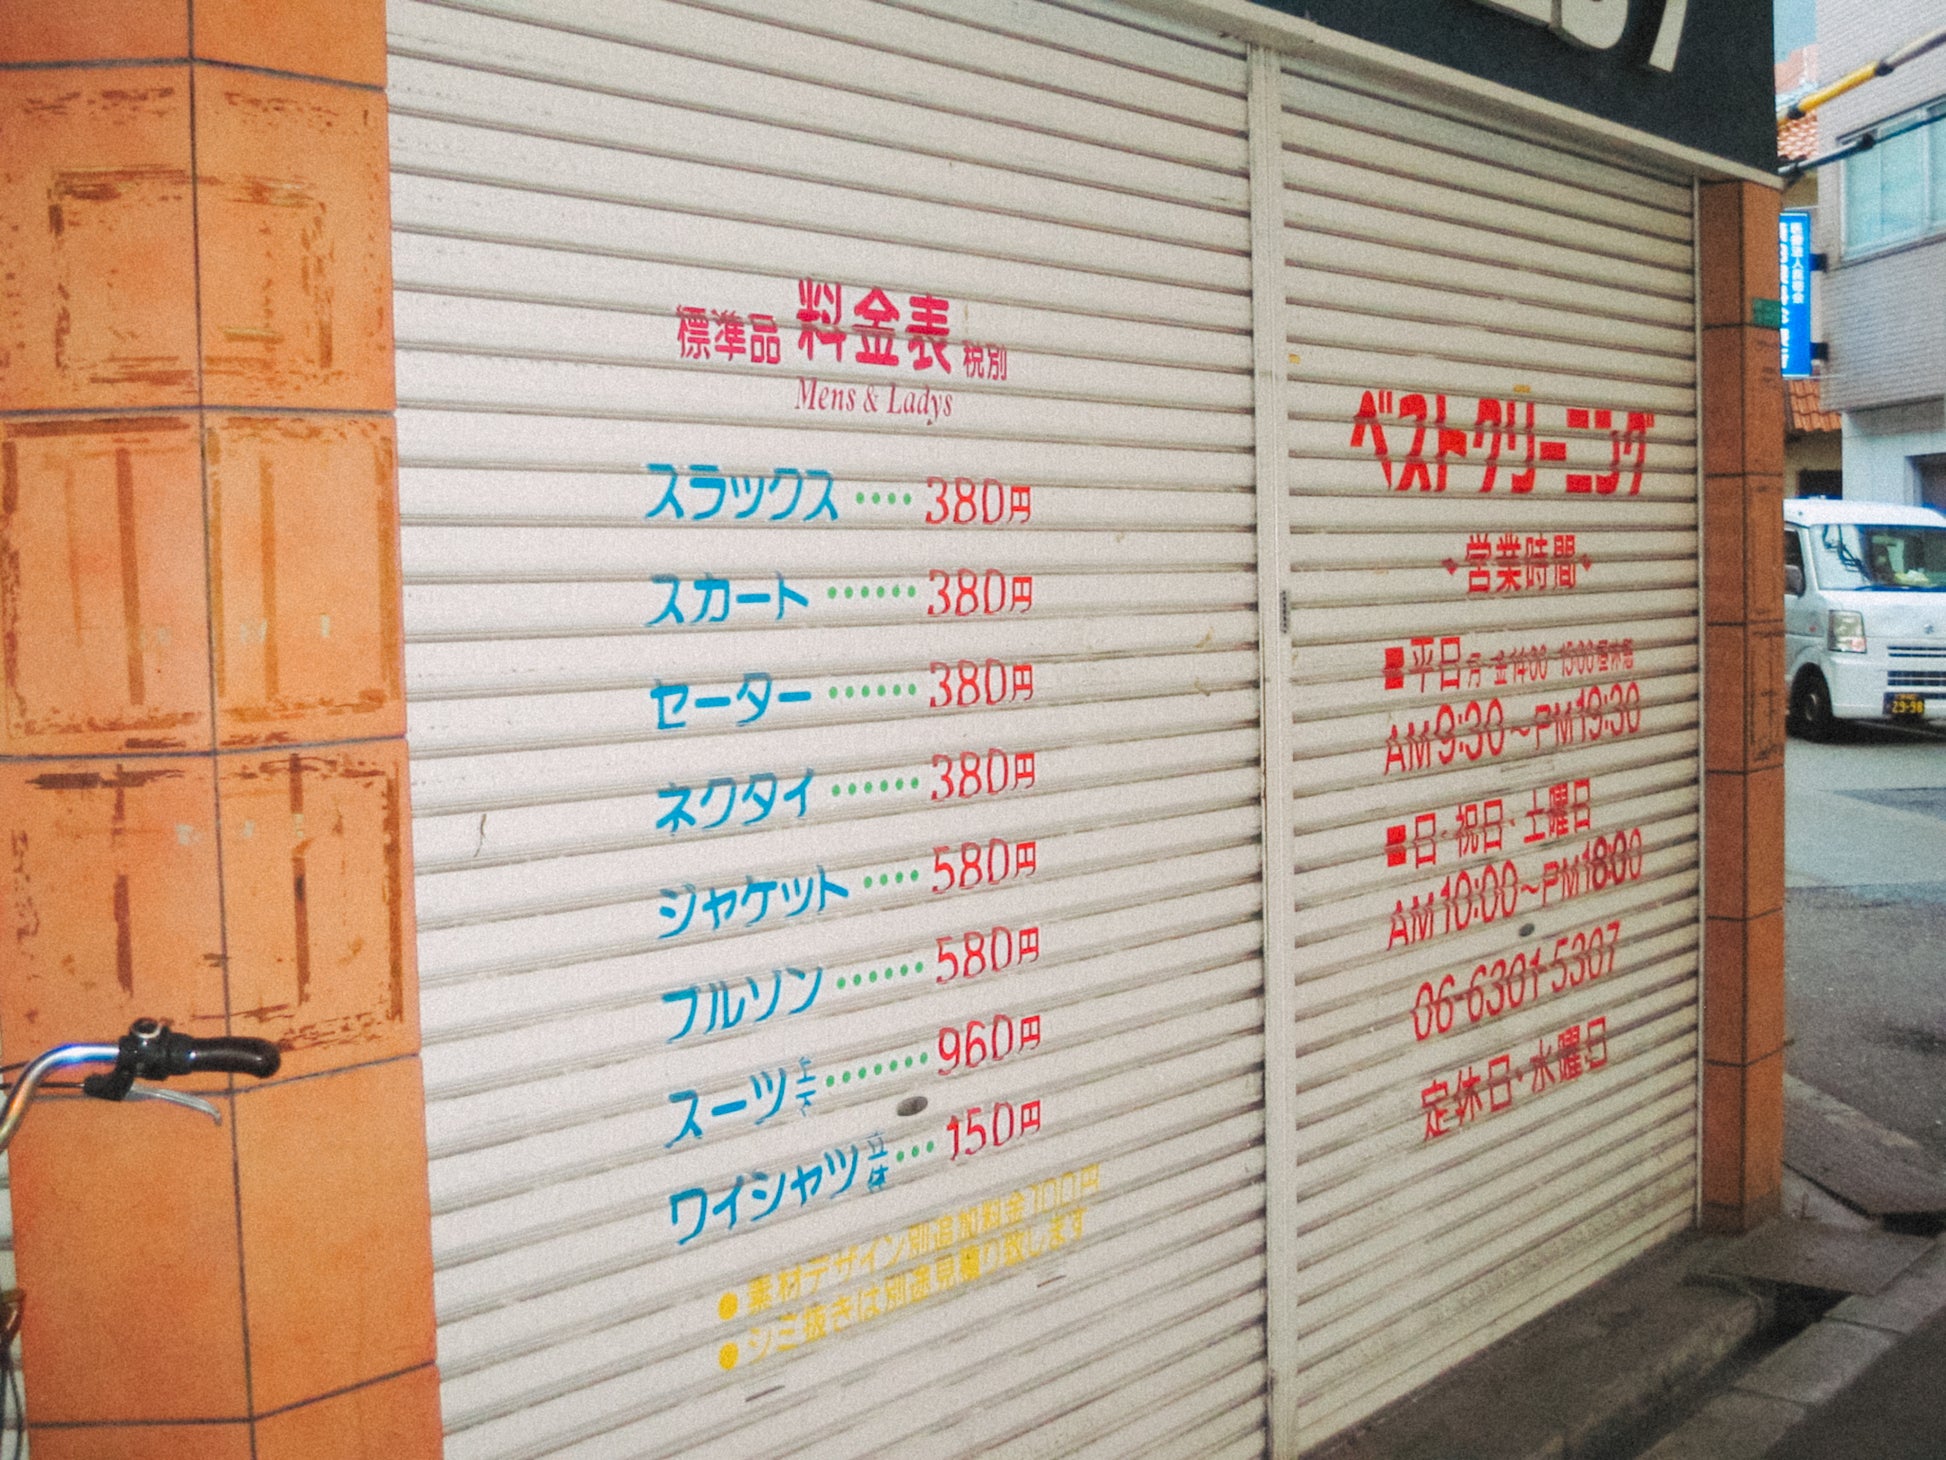 標準品 料金表 税別
Mens & Ladys
スラックス ‥‥ 380円
スカート ‥‥‥ 380円
セーター ‥‥‥ 380円
ネクタイ ‥‥‥ 380円
ジャケット ‥‥ 580円
ブルゾン ‥‥‥ 580円
スーツ上下 ‥‥‥‥ 960円
ワイシャツ立体 ‥・ 150円
●素材デザイン別追加料金100円
●シミ抜きは別途見積り致します
ベストクリーニング
・営業時間・
■平日 月〜金14:00〜15:00昼休憩
AM9:30〜PM19:30
■日・祝日・土曜日
AM10:00〜PM18:00
06-6301-5307
定休日・水曜日
29-98